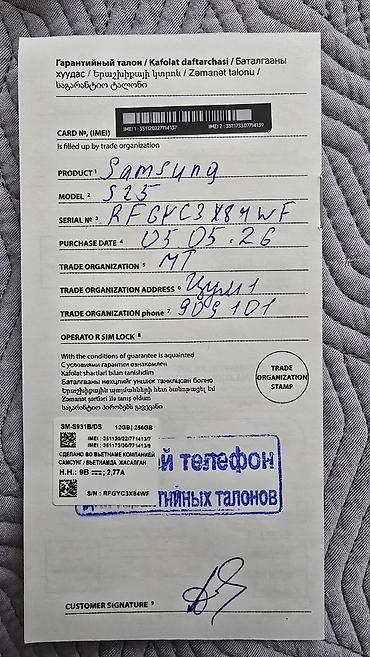 Гарантийный талон / Kafolat daftarchasi / Баталгааны
хуудас / Երաշխիքային կտրոն / Zəmanət talonu /
საგარანტიო ტალონი
CARD №, (IMEI)
IMEI 1: 351120227714137 IMEI 2: 351173307714139
Is filled up by trade organization
PRODUCT 1 Samsung
MODEL 2 S25
SERIAL № 3 RFGYC3X84WF
PURCHASE DATE 4 05.05.26
TRADE ORGANIZATION 5 МТ
TRADE ORGANIZATION ADDRESS 6 Цум1
TRADE ORGANIZATION phone 7 909101
OPERATOR SIM LOCK 8
With the conditions of guarantee is aquainted
С условиями гарантии ознакомлен
Kafolat shartlari bilan tanishdim
Баталгааны нөхцлийг уншиж танилцсан болно
Երաշխիքային պայմանների հետ ծանոթացել եմ
Zəmanət şərtləri ilə tanış oldum
საგარანტიო პირობებს გავეცანი
TRADE
ORGANIZATION
STAMP
SM-S931B/DS 12GB| 256GB
IMEI : 351120/22/771413/7
IMEI : 351173/30/771413/9
СДЕЛАНО ВО ВЬЕТНАМЕ КОМПАНИЕЙ
САМСУНГ / ВЬЕТНАМДА ЖАСАЛҒАН
Н.Н.: 9В ; 2,77А
S/N : RFGYC3X84WF
й телефон
тийных талонов
CUSTOMER SIGNATURE 9